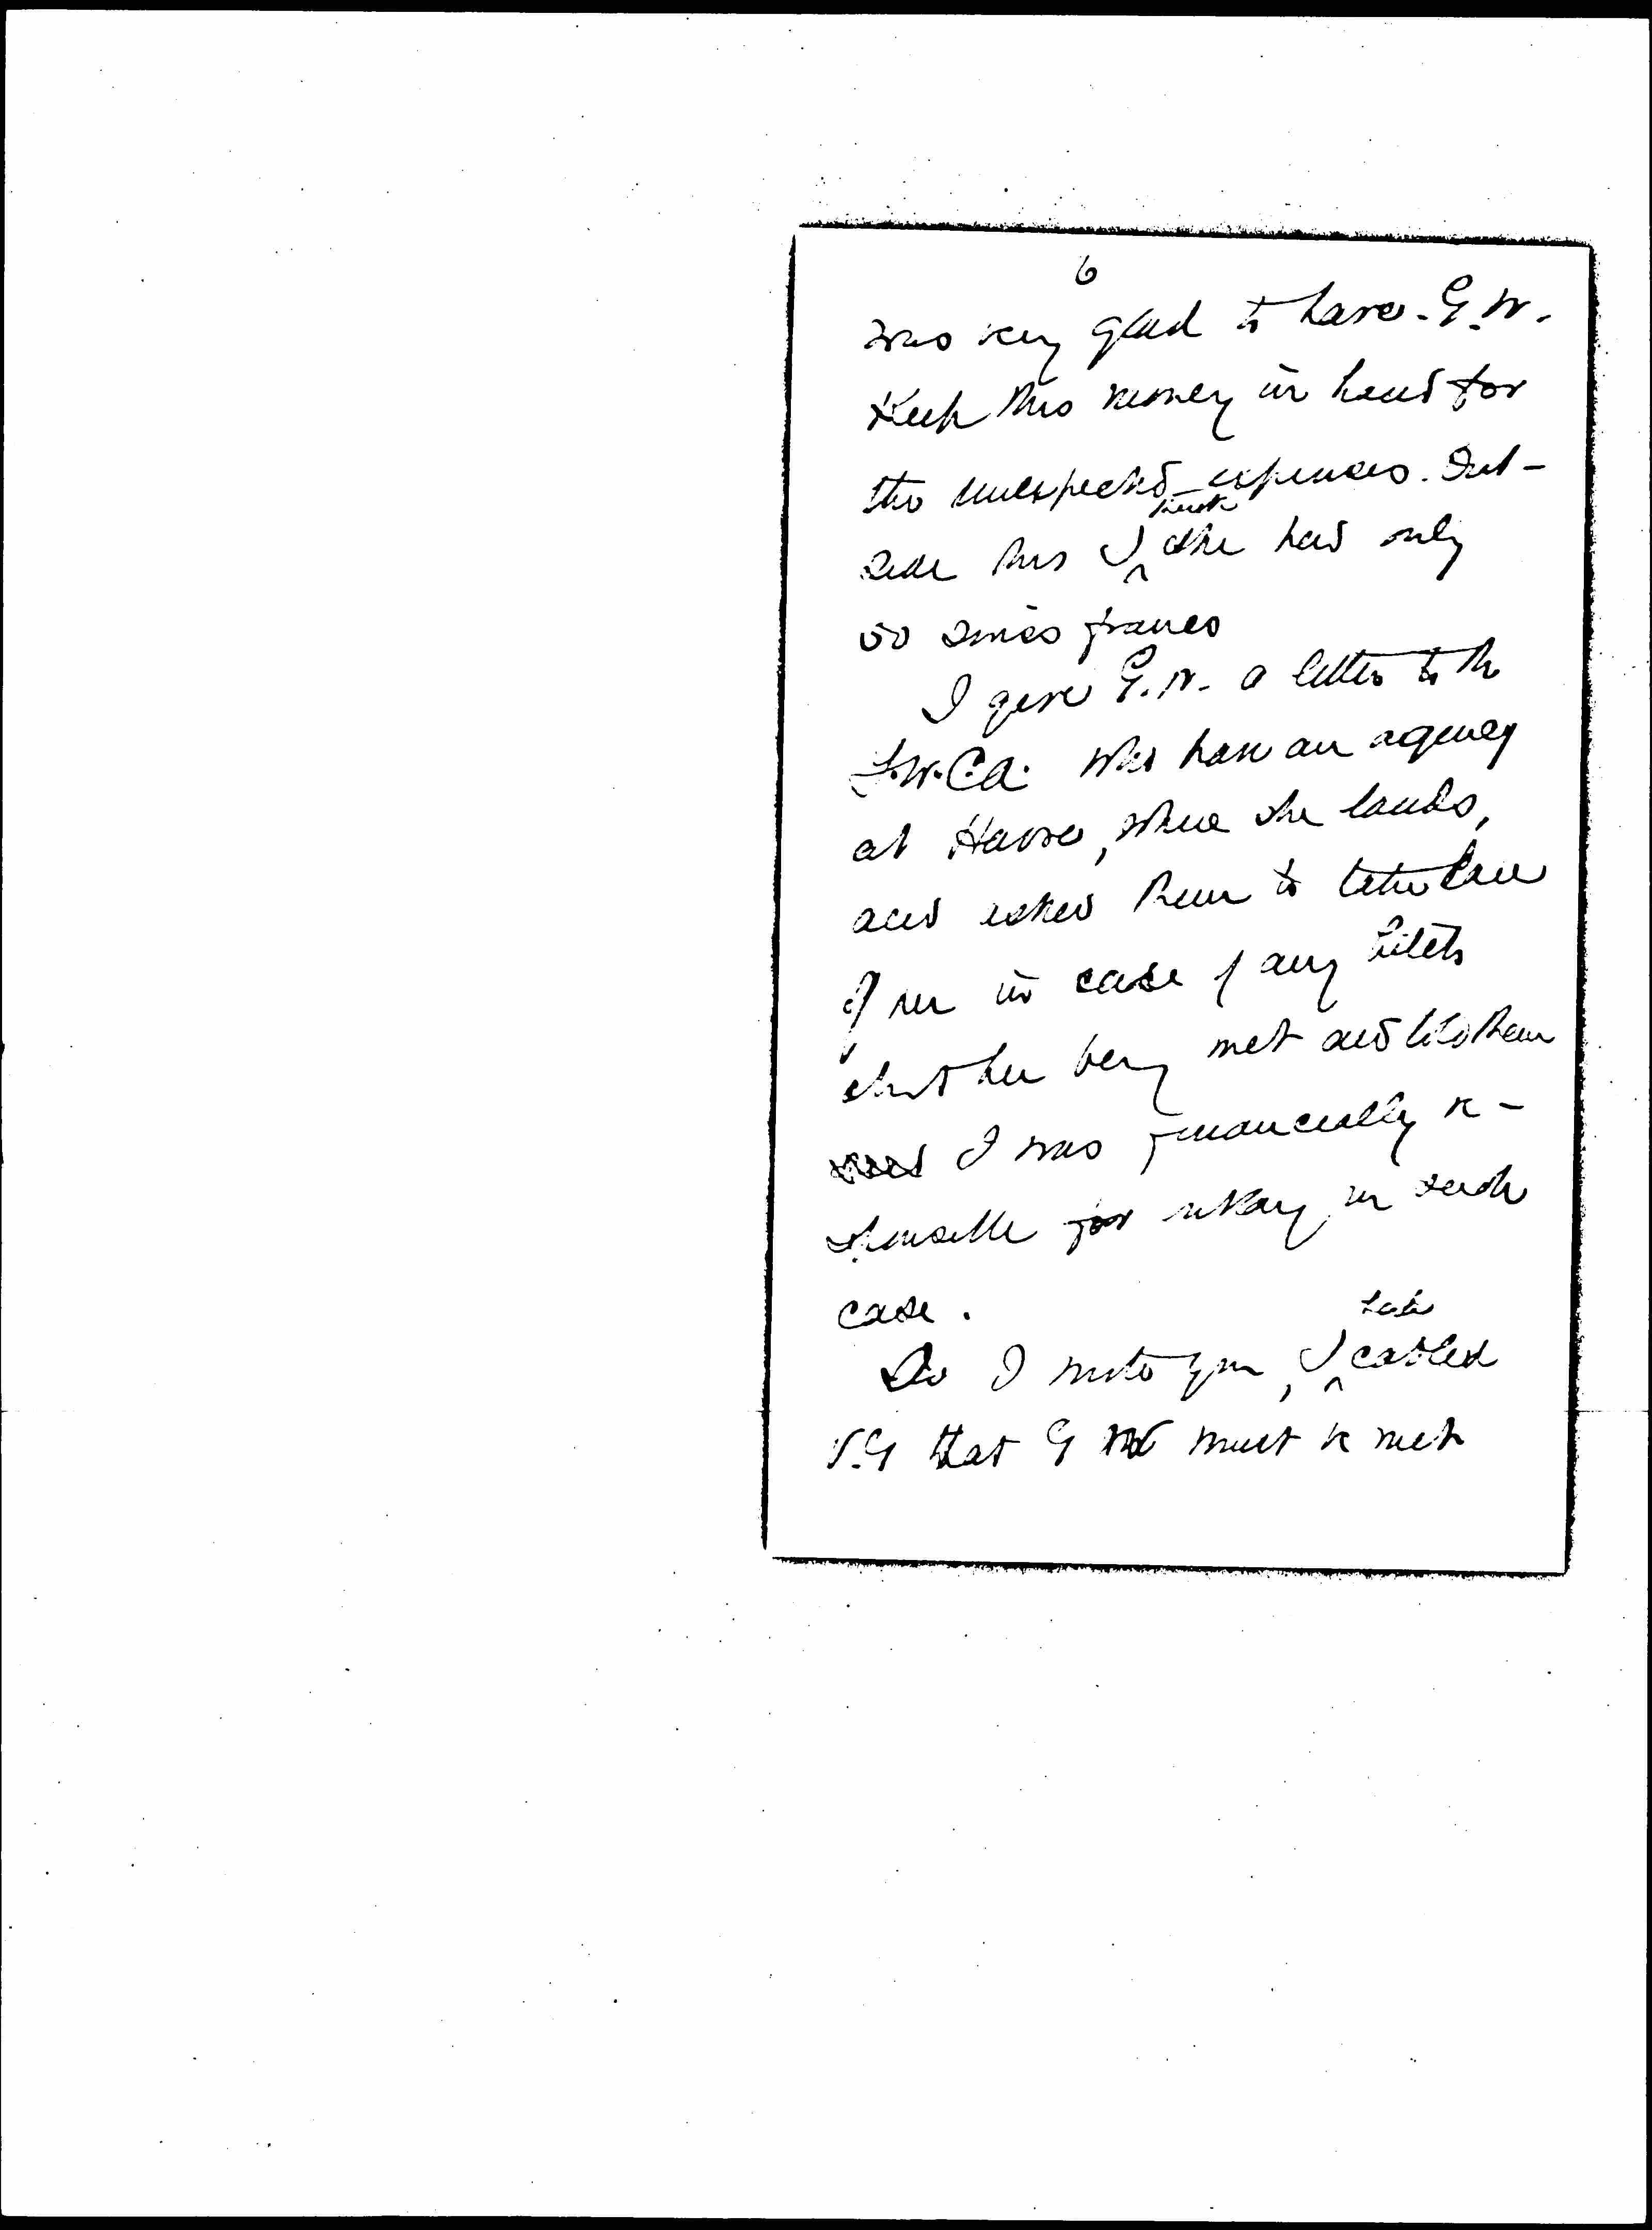 6
was very glad to have G.W.
Keep this money in hand for
the unexpected expenses. Out-
side this I think she had only
50 swiss francs
I gave G.W. a letter to the
Y.W.C.A. who have an agency
at Havre, where she lands,
and asked them to take care
of her in case of any hitch
about her being met and told them
I was financially re-
sponsible for outlay in such
case.
As I wrote you, I later cabled
V.G that G W must be met